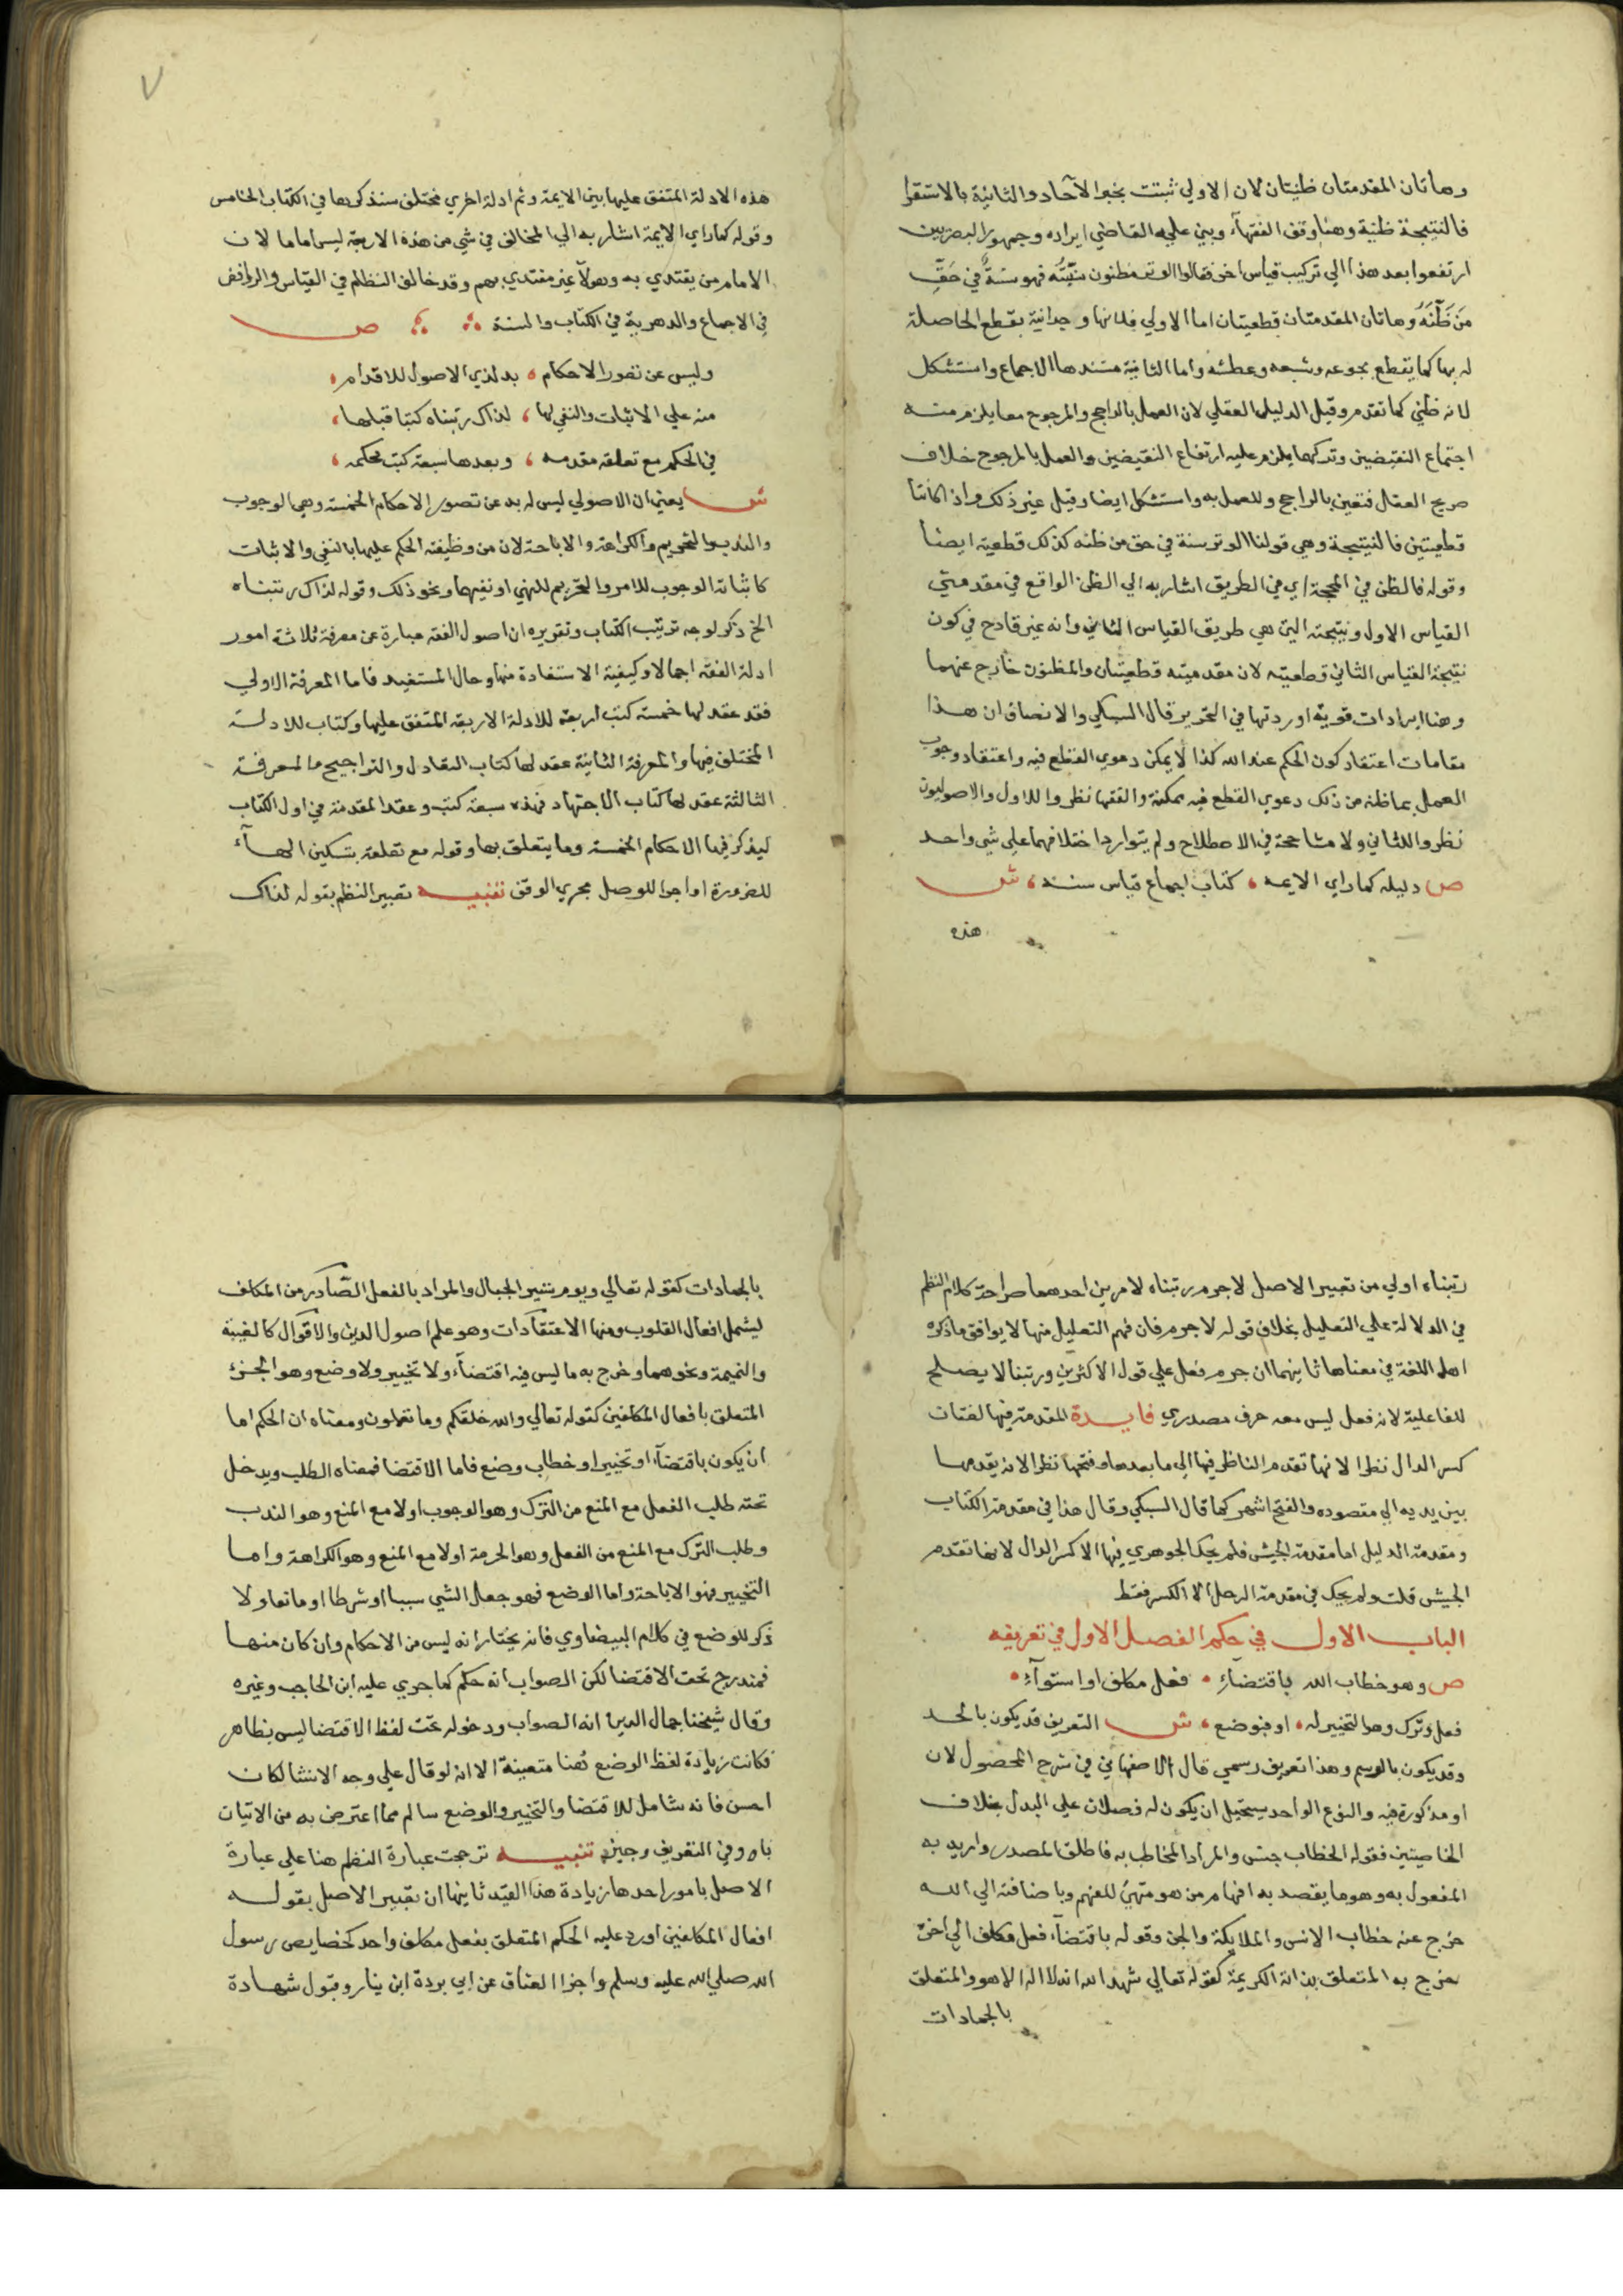 وهاتان المقدمتان ظنيتان لان الاولي ثبتت بخبر الآحاد والثانية بالاستقرا
فالنتيجة ظنية وهنا وقف الفقهآء وبني عليه القاضي ايراده وجمهور
ارتفعوا بعد هذا الي تركيب قياس اخر فقالوا الوتر مظنون سنيته فهو سنة في حق
من ظنه وهاتان المقدمتان قطعيتان اما الاولي فلانها وجدانية يقطع الحاصلة
له بها كما يقطع بجوعه وشبعه وعطشه واما الثانية مستندها الاجماع واستشكل
لانه ظني كما تقدم وقيل الدليل العقلي لان العمل بالراجح والمرجوح معا يلزم منه
اجتماع النقيضين وتركهما يلزم عليه ارتفاع النقيضين والعمل بالمرجوح خلاف
صريح العقل فتعين بالراجح والعمل به واستشكل ايضا وقيل غير ذلك واذا كانتا
قطعيتين فالنتيجة وهي قولنا الوتر سنة في حق من ظنه كذلك قطعية ايضا
وقوله فالظن في المحجة اي في الطريق اشار به الي الظن الواقع في مقدمتي
القياس الاول ونتيجته التي هي طريق القياس الثاني وانه غير قادح في كون
نتيجة القياس الثاني قطعيته لان مقدمتيه قطعيتان والمظنون خارج عنهما
وهنا ايرادات قوية اوردتها في التحرير قال السبكي والانصاف ان هذا
مقامات اعتقاد كون الحكم عند الله كذا لا يمكن دعوي القطع فيه واعتقاد وجوب
العمل بما ظنه من ذلك دعوي القطع فيه ممكنة والفقها نظروا للاول والاصوليون
نظروا للثاني ولا مشاححة في الاصطلاح ولم يتوارد اختلافهما علي شي واحد
ص دليله كما راي الايمه ، كتاب اجماع قياس سنه ، ش
هذه
هذه الادلة المتفق عليها بين الايمة وثم ادلة اخري مختلف سنذكرها في الكتاب الخامس
وقوله كما راي الايمة اشار به الي المخالف في شي من هذه الاربعة ليس اماما لان
الامام من يقتدي به وهولآ غير مقتدي بهم وقد خالف النظام في القياس والروافض
في الاجماع والدهرية في الكتاب والسنة ص
وليس عن تصور الاحكام ، بد لذي الاصول للاقدام ،
منه علي الاثبات والنفي لها ، لذاك رتبناه كتبا قبلها ،
في الحكم مع تعلقه مقدمه ، وبعدها سبعة كتب محكمه ،
ش يعني ان الاصولي ليس له بد عن تصور الاحكام الخمسة وهي الوجوب
والندب والتحريم والكراهة والاباحة لان من وظيفته الحكم عليها بالنفي والاثبات
كاثباته الوجوب للامر والتحريم للنهي او نفيهما ونحو ذلك وقوله لذاك رتبناه
الخ ذكر لوجه ترتيب الكتاب وتقريره ان اصول الفقه عبارة عن معرفة ثلاثة امور
ادلة الفقه اجمالا وكيفية الاستفادة منها وحال المستفيد فاما المعرفة الاولي
فقد عقد لها خمسة كتب اربعة للادلة الاربعة المتفق عليها وكتاب للادلة
المختلف فيها والمعرفة الثانية عقد لها كتاب التعادل والتراجيح والمعرفة
الثالثة عقد لها كتاب الاجتهاد فهذه سبعة كتب وعقد المقدمة في اول الكتاب
ليذكر فيها الاحكام الخمسة وما يتعلق بها وقوله مع تعلقه بتسكين الهآء
للضرورة او اجرا للوصل مجري الوقف تنبيه تعبير النظم بقوله لذاك
رتبناه اولي من تعبير الاصل لاجرم رتبناه لامرين احدهما صراحة كلام النظم
في الدلالة علي التعليل بخلاف قوله لاجرم فان فهم التعليل منها لا يوافق ما ذكره
اهل اللغة في معناها ثانيهما ان جرم فعل علي قول الاكثرين ورتبنا لا يصلح
للفاعلية لانه فعل ليس معه حرف مصدري فايدة المقدمة فيها لغتان
كسر الدال نظرا لانها تقدم الناظر فيها الي ما بعدها وفتحها نظرا لانه يقدمها
بين يديه الي مقصوده والفتح اشهر كما قال السبكي وقال هذا في مقدمة الكتاب
ومقدمة الدليل اما مقدمة الجيش فلم يحك الجوهري فيها الا كسر الدال لانها تقدم
الجيش قلت ولم يحك في مقدمة الرحل الا الكسر فقط
الباب الاول في حكم الفصل الاول في تعريفه
ص وهو خطاب الله باقتضآء ، فعل مكلف او استوآء ،
فعل وترك وهو التخيير له ، او بوضع ، ش التعريف قد يكون بالحد
وقد يكون بالرسم وهذا تعريف رسمي قال الاصفهاني في شرح المحصول لان
او مذكورة فيه والنوع الواحد يستحيل ان يكون له فصلان علي البدل بخلاف
الخاصيتين فقوله الخطاب جنس والمراد المخاطب به فاطلق المصدر واريد به
المفعول به وهو ما يقصد به افهام من هو متهيئ للفهم وباضافته الي الله
خرج عنه خطاب الانس والملايكة والجن وقوله باقتضآء فعل مكلف الي اخره
خرج به المتعلق بذاته الكريمة كقوله تعالي شهد الله انه لا اله الا هو والمتعلق
بالجمادات
بالجمادات كقوله تعالي ويوم نسير الجبال والمراد بالفعل الصادر من المكلف
ليشمل افعال القلوب ومنها الاعتقادات وهو علم اصول الدين والاقوال كالغيبة
والنميمة ونحوهما وخرج به ما ليس فيه اقتضآء ولا تخيير ولا وضع وهو الجزء
المتعلق بافعال المكلفين كقوله تعالي والله خلقكم وما تعملون ومعناه ان الحكم اما
ان يكون باقتضآء او تخيير او خطاب وضع فاما الاقتضا فمعناه الطلب ويدخل
تحته طلب الفعل مع المنع من الترك وهو الوجوب او لا مع المنع وهو الندب
وطلب الترك مع المنع من الفعل وهو الحرمة او لا مع المنع وهو الكراهة واما
التخيير فهو الاباحة واما الوضع فهو جعل الشي سببا او شرطا او مانعا ولا
ذكر للوضع في كلام البيضاوي فانه يختار انه ليس من الاحكام وان كان منها
فمندرج تحت الاقتضا لكن الصواب انه حكم كما جري عليه ابن الحاجب وغيره
وقال شيخنا جمال الدين انه الصواب ودخوله تحت لفظ الاقتضا ليس بظاهر
فكانت زيادة لفظ الوضع هنا متعينة الا انه لو قال علي وجه الانشا لكان
احسن فانه شامل للاقتضا والتخيير والوضع سالم مما اعترض به من الاتيان
باو وفي التعريف وجيز تنبيه ترجحت عبارة النظم هنا علي عبارة
الاصل بامور احدها زيادة هذا القيد ثانيها ان تعبير الاصل بقوله
افعال المكلفين اورد عليه الحكم المتعلق بفعل مكلف واحد كخصايص رسول
الله صلي الله عليه وسلم واجزا العناق عن ابي بردة ابن نيار وقبول شهادة